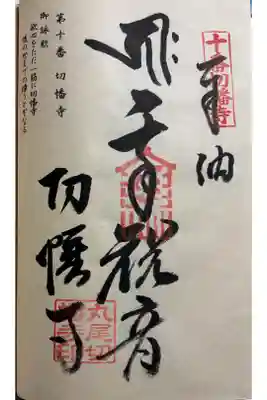 奉納
十番切幡寺
千手観音
切幡寺
第十番 切幡寺
御詠歌
欲心をただ一筋に切幡寺
後の世までの障りとぞなる